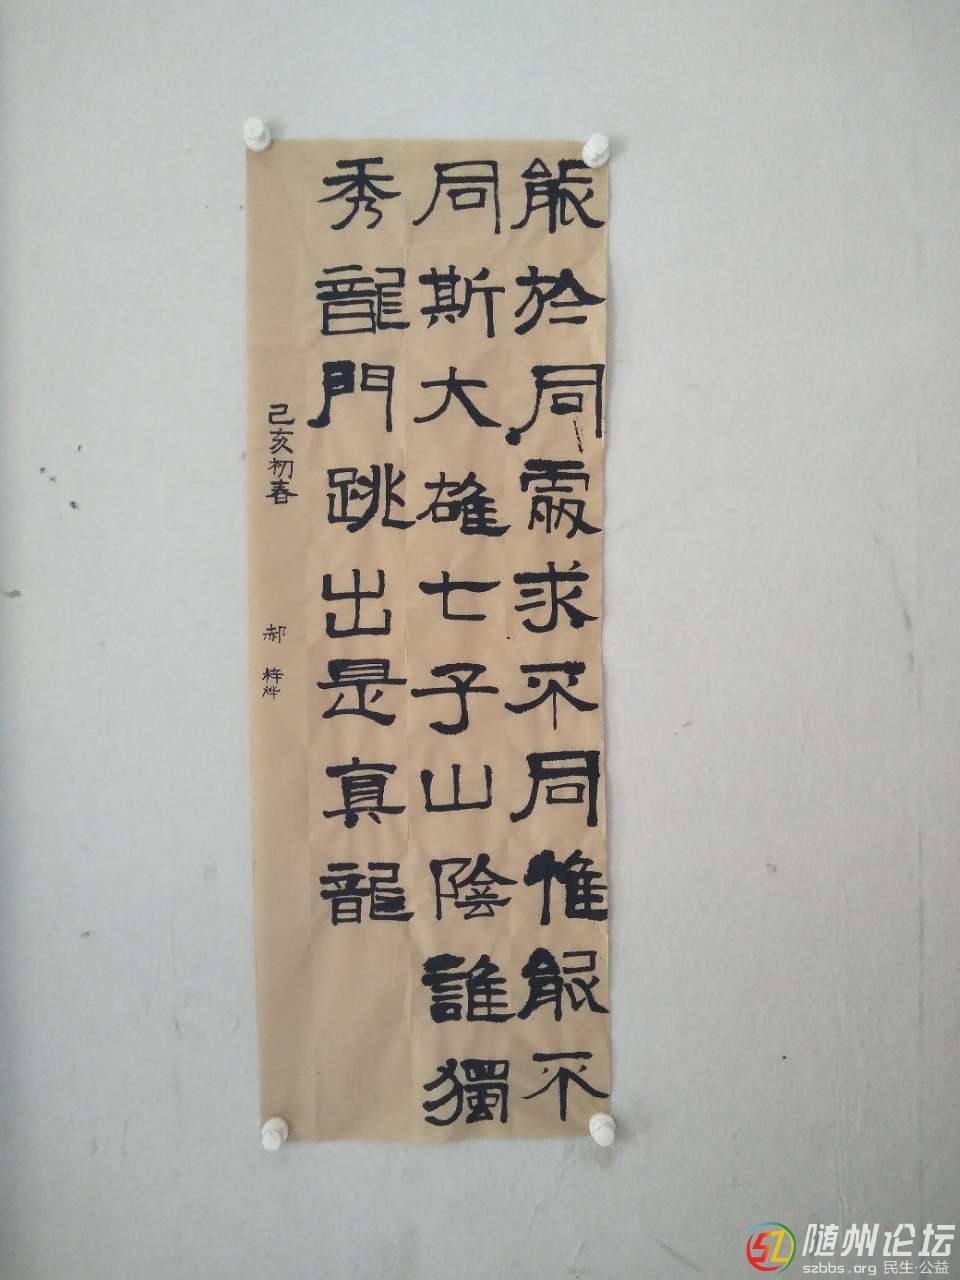 能於同處求不同惟能不
同斯大雄七子山陰誰獨
秀龍門跳出是真龍
己亥初春
郝梓烨
随州论坛
szbbs.org 民生·公益